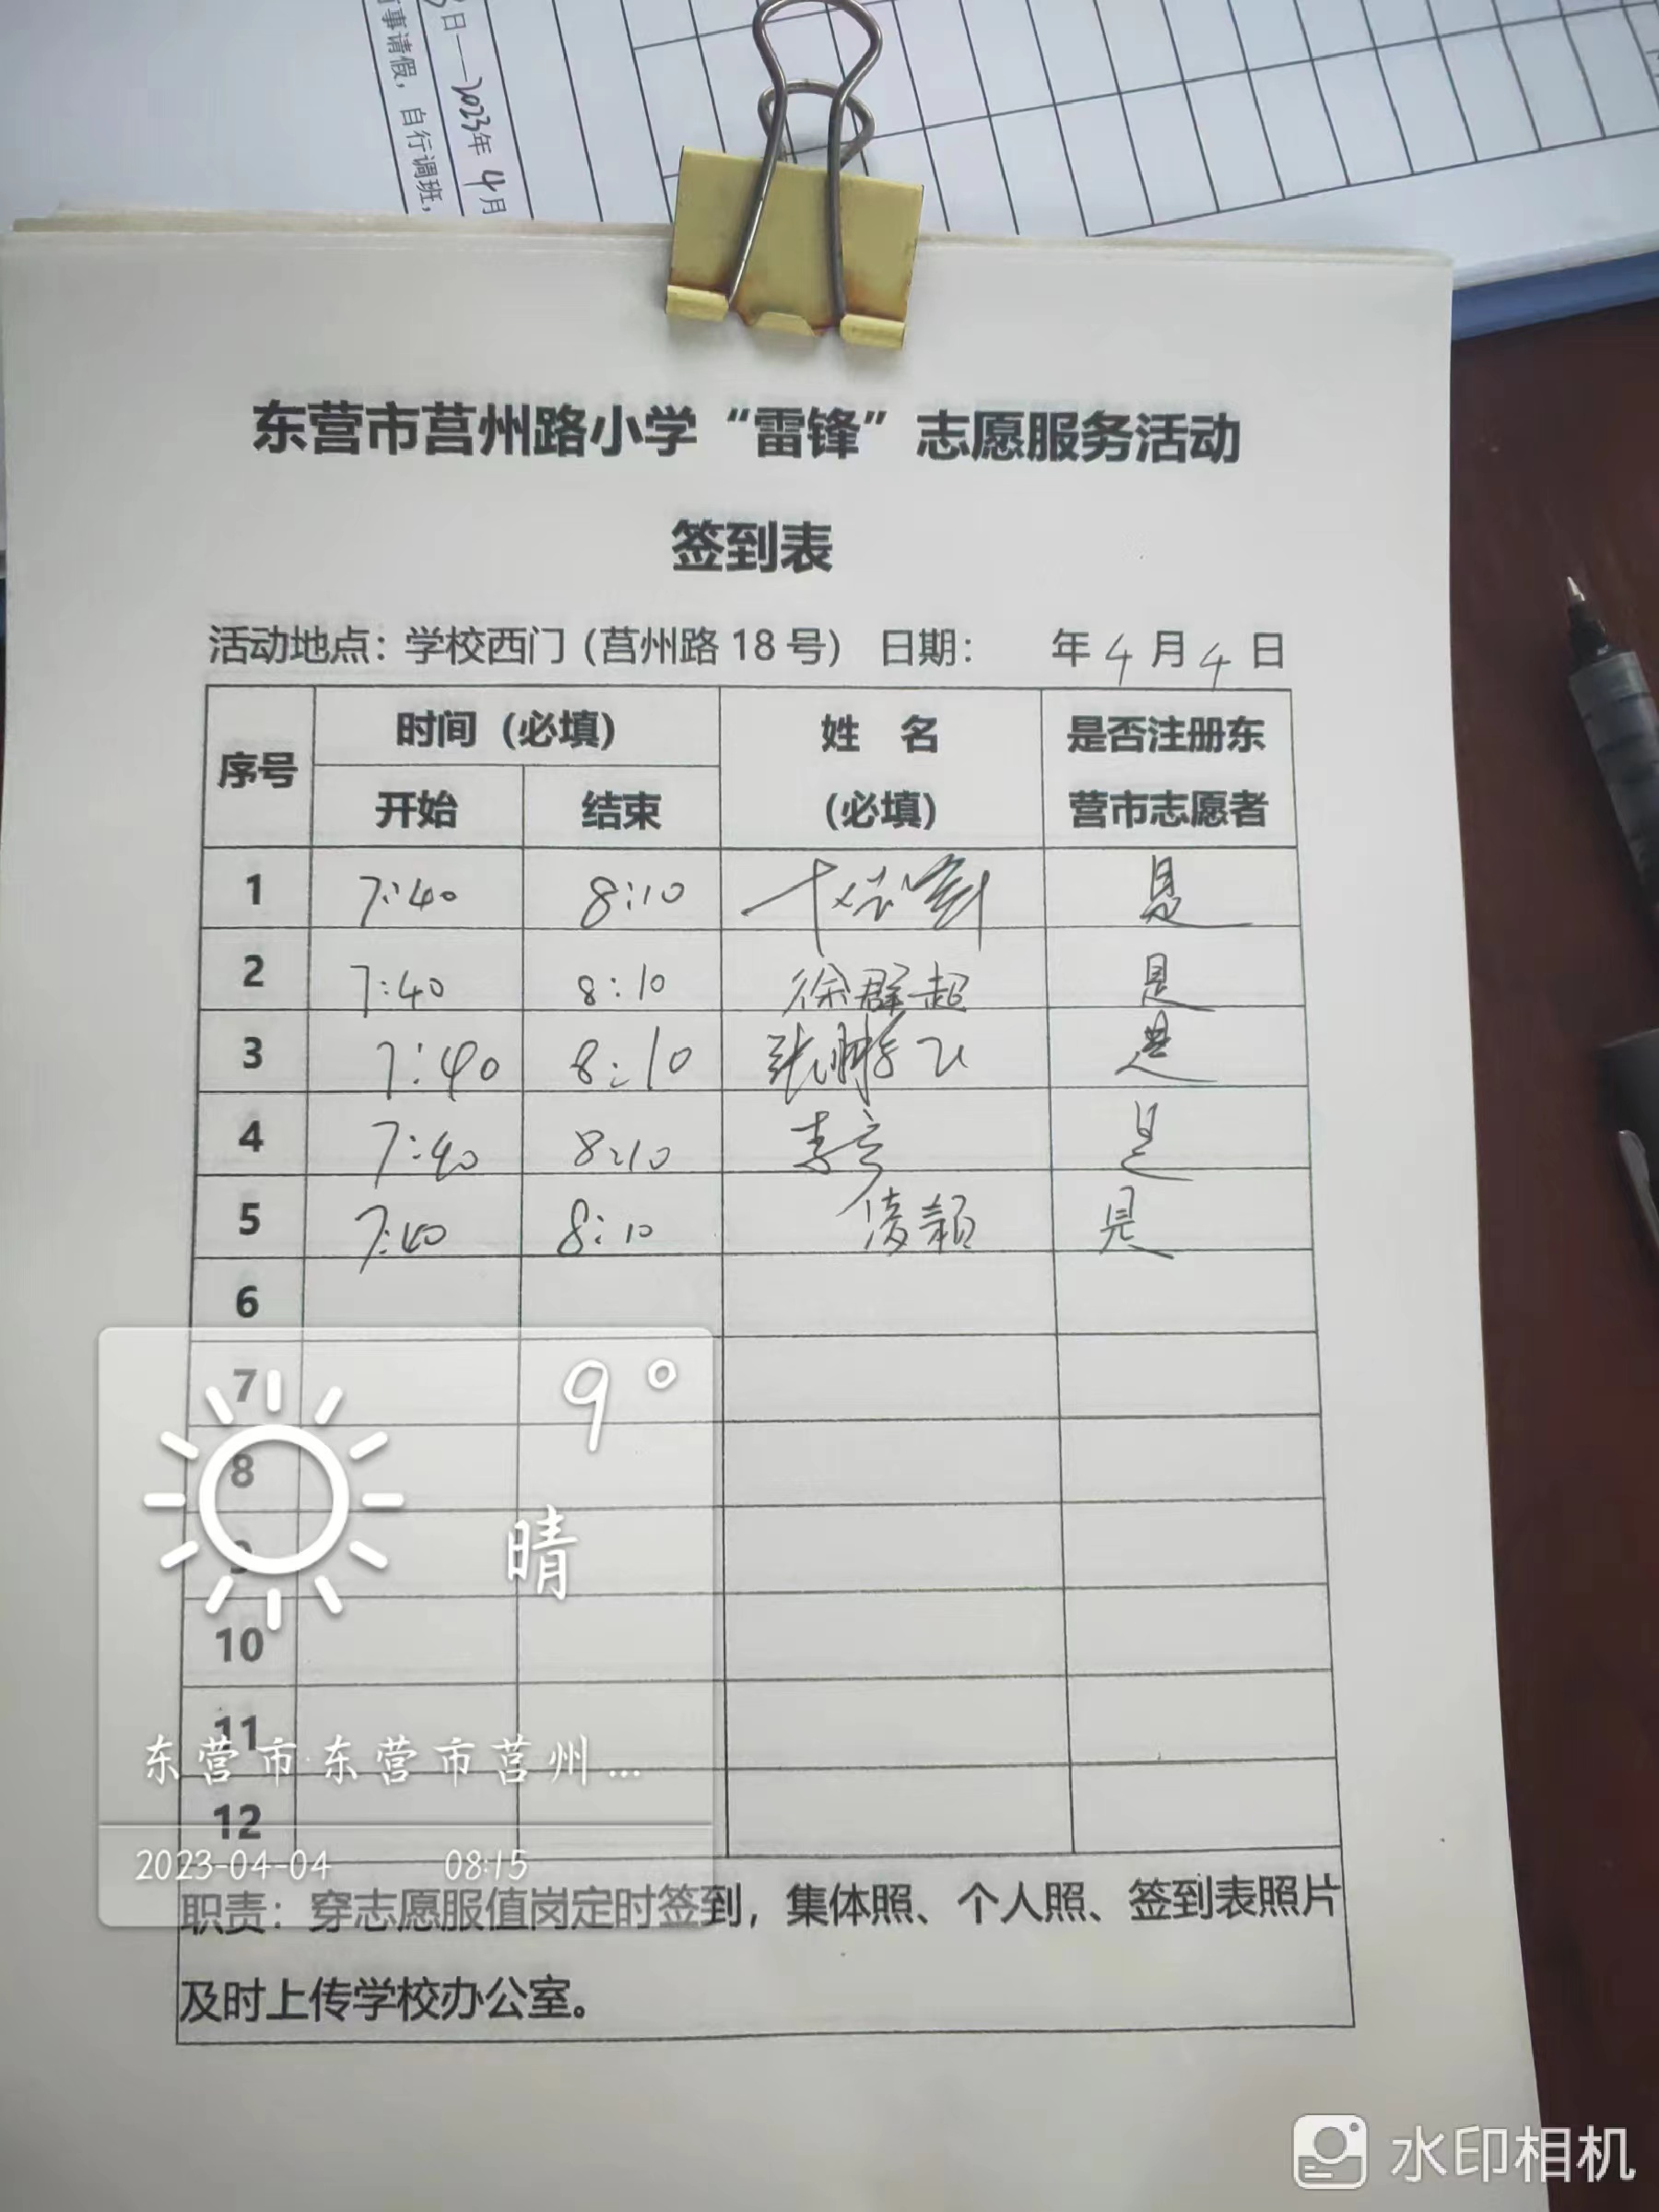 日—2023年 4月
事请假，自行调班，
东营市莒州路小学“雷锋”志愿服务活动
签到表
活动地点：学校西门（莒州路 18 号） 日期： 年 4 月 4 日
序号 时间（必填） 姓 名 是否注册东
开始 结束 （必填） 营市志愿者
1 7:40 8:10 是
2 7:40 8:10 徐群超 是
3 7:40 8:10 张鹏飞 是
4 7:40 8:10 李 是
5 7:40 8:10 是
6
7
8
9
10
11
12
9°
晴
东营市·东营市莒州...
2023-04-04 08:15
职责：穿志愿服值岗定时签到，集体照、个人照、签到表照片
及时上传学校办公室。
水印相机